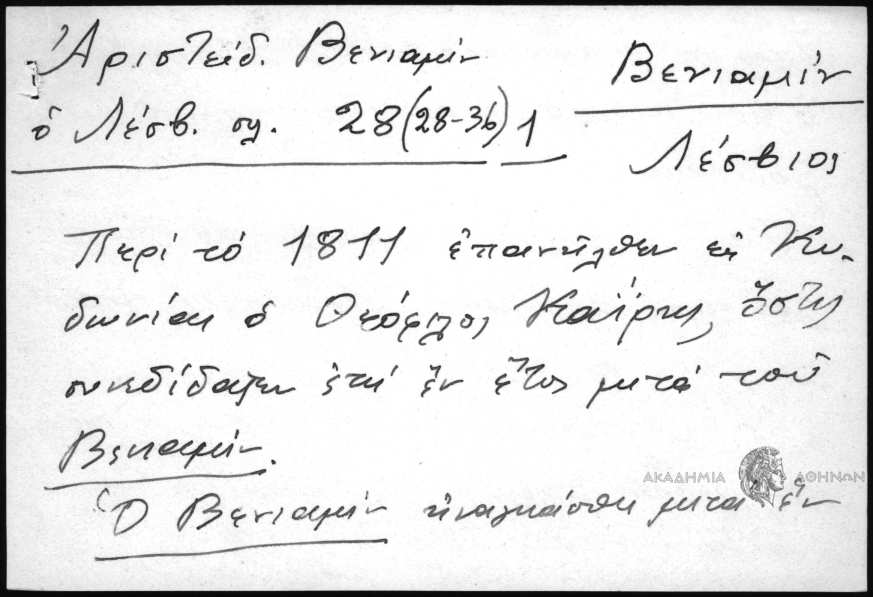 Ἀριστείδ. Βενιαμίν
ὁ Λέσβ. σελ. 28 (28-36) 1
Βενιαμίν
Λέσβιος
Περί τό 1811 ἐπανῆλθεν εἰς Κυ-
δωνίας ὁ Θεόφιλος Καΐρης, ὅστις
συνεδίδαξεν ἐπί ἕν ἔτος μετά τοῦ
Βενιαμίν.
Ὁ Βενιαμίν ἠναγκάσθη μετά ἕν
ΑΚΑΔΗΜΙΑ ΑΘΗΝΩΝ